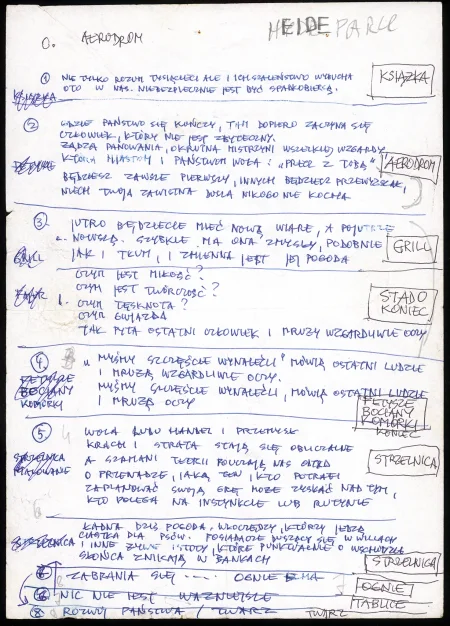 HEIDE PARK
0. AERODROM
① NIE TYLKO ROZUM TYSIĄCLECI ALE I ICH SZALEŃSTWO WYBUCHA
OTO W NAS. NIEBEZPIECZNIE JEST BYĆ SPADKOBIERCĄ.
KSIĄŻKA
KSIĄŻKA
② GDZIE PAŃSTWO SIĘ KOŃCZY, TAM DOPIERO ZACZYNA SIĘ
CZŁOWIEK, KTÓRY NIE JEST ZBYTECZNY.
ŻĄDZA PANOWANIA, OKRUTNA MISTRZYNI WSZELKIEJ WZGARDY
KTÓRA MIASTOM I PAŃSTWOM WOŁA: "PRECZ Z TOBĄ".
AERODROM
BĘDZIESZ ZAWSZE PIERWSZY, INNYCH BĘDZIESZ PRZEWYŻSZAŁ,
NIECH TWOJA ZAWISTNA DUSZA NIKOGO NIE KOCHA
③ JUTRO BĘDZIECIE MIEĆ NOWĄ WIARĘ, A POJUTRZE
NOWSZĄ. SZYBKIE MA ONA ZMYSŁY, PODOBNIE
JAK I TŁUM, I ZMIENNA JEST JEJ POGODA
GRILL
GRILL
CZYM JEST MIŁOŚĆ?
CZYM JEST TWÓRCZOŚĆ?
CZYM TĘSKNOTA?
CZYM GWIAZDA
TAK PYTA OSTATNI CZŁOWIEK I MRUŻY WZGARDLIWIE OCZY
STADO
KONIEC
④ "MYŚMY SZCZĘŚCIE WYNALEŹLI" MÓWIĄ OSTATNI LUDZIE
I MRUŻĄ WZGARDLIWIE OCZY.
MYŚMY SZCZĘŚCIE WYNALEŹLI, MÓWIĄ OSTATNI LUDZIE
I MRUŻĄ OCZY
FETYSZE
BOCIANY
KOMÓRKI
FETYSZE
BOCIANY
KOMÓRKI
KONIEC
⑤ WOLA LUDU HANDEL I PRZEMYSŁ
KRACH I STRATA STAJĄ SIĘ OBLICZALNE
A SZAMANI TEORII POUCZAJĄ NAS
O PRZEWADZE, JAKĄ TEN, KTO POTRAFI
ZAPLANOWAĆ SWOJĄ GRĘ MOŻE ZYSKAĆ NAD TYM,
KTO POLEGA NA INSTYNKCIE LUB RUTYNIE
STRZELNICA
STRZELNICA
ŁADNA DZIŚ POGODA, WŁÓCZĘDZY, KTÓRZY JEDZĄ
CIASTKA DLA PSÓW. POSIADACZE DUSZĄCY SIĘ W WILLACH
I INNE ŻYWE ISTOTY, KTÓRE PUNKTUALNIE O WSCHODZIE
SŁOŃCA ZNIKAJĄ W BANKACH
STRZELNICA
STRZELNICA
ZABRANIA SIĘ ..... OGNIE
OGNIE
NIC NIE JEST WAŻNIEJSZE
TABLICE
⑧ ROZWÓJ PAŃSTWA / TWARZ
TWARZ